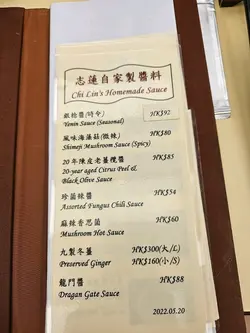 志蓮自家製醬料
Chi Lin's Homemade Sauce
銀稔醬(時令) HK$92
Yenin Sauce (Seasonal)
風味海藻菇(微辣) HK$80
Shimeji Mushroom Sauce (Spicy)
20年陳皮老薑欖醬 HK$85
20-year aged Citrus Peel &
Black Olive Sauce
珍菌辣醬 HK$54
Assorted Fungus Chili Sauce
麻辣香思菌 HK$60
Mushroom Hot Sauce
九製冬薑 HK$300(大/L)
Preserved Ginger HK$160(小/S)
龍門醬 HK$88
Dragan Gate Sauce
2022.05.20